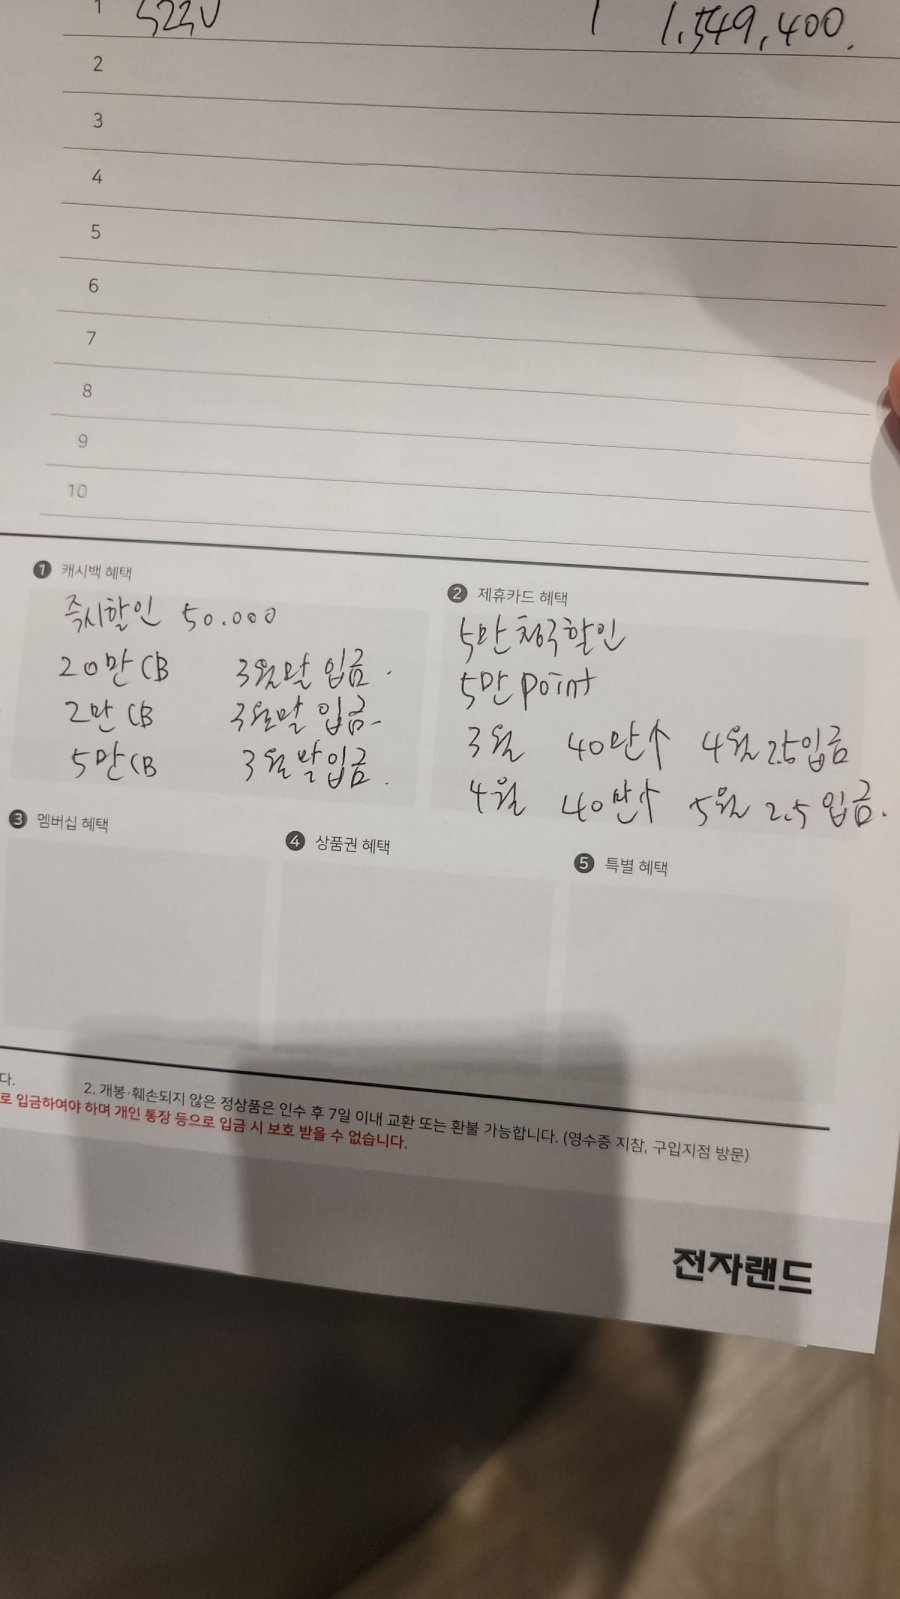 1 S23U 1 1,549,400.
2
3
4
5
6
7
8
9
10
1 캐시백 혜택
즉시할인 50.000
20만 CB 3월말 입금.
2만 CB 3월말 입금.
5만 CB 3월말 입금.
2 제휴카드 혜택
5만 청구할인
5만 point
3월 40만↑ 4월 2.5 입금
4월 40만↑ 5월 2.5 입금.
3 멤버십 혜택
4 상품권 혜택
5 특별 혜택
다. 2. 개봉·훼손되지 않은 정상품은 인수 후 7일 이내 교환 또는 환불 가능합니다. (영수증 지참, 구입지점 방문)
로 입금하여야 하며 개인 통장 등으로 입금 시 보호 받을 수 없습니다.
전자랜드